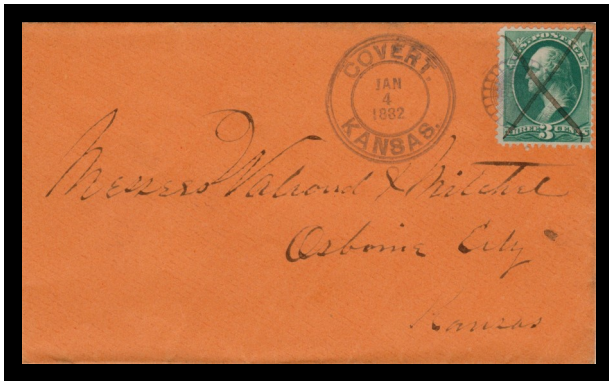 COVERT.
JAN
4
1882
KANSAS.
U.S. POSTAGE
THREE 3 CENTS
Messers Walrond & Mitchel
Osborne City
Kansas